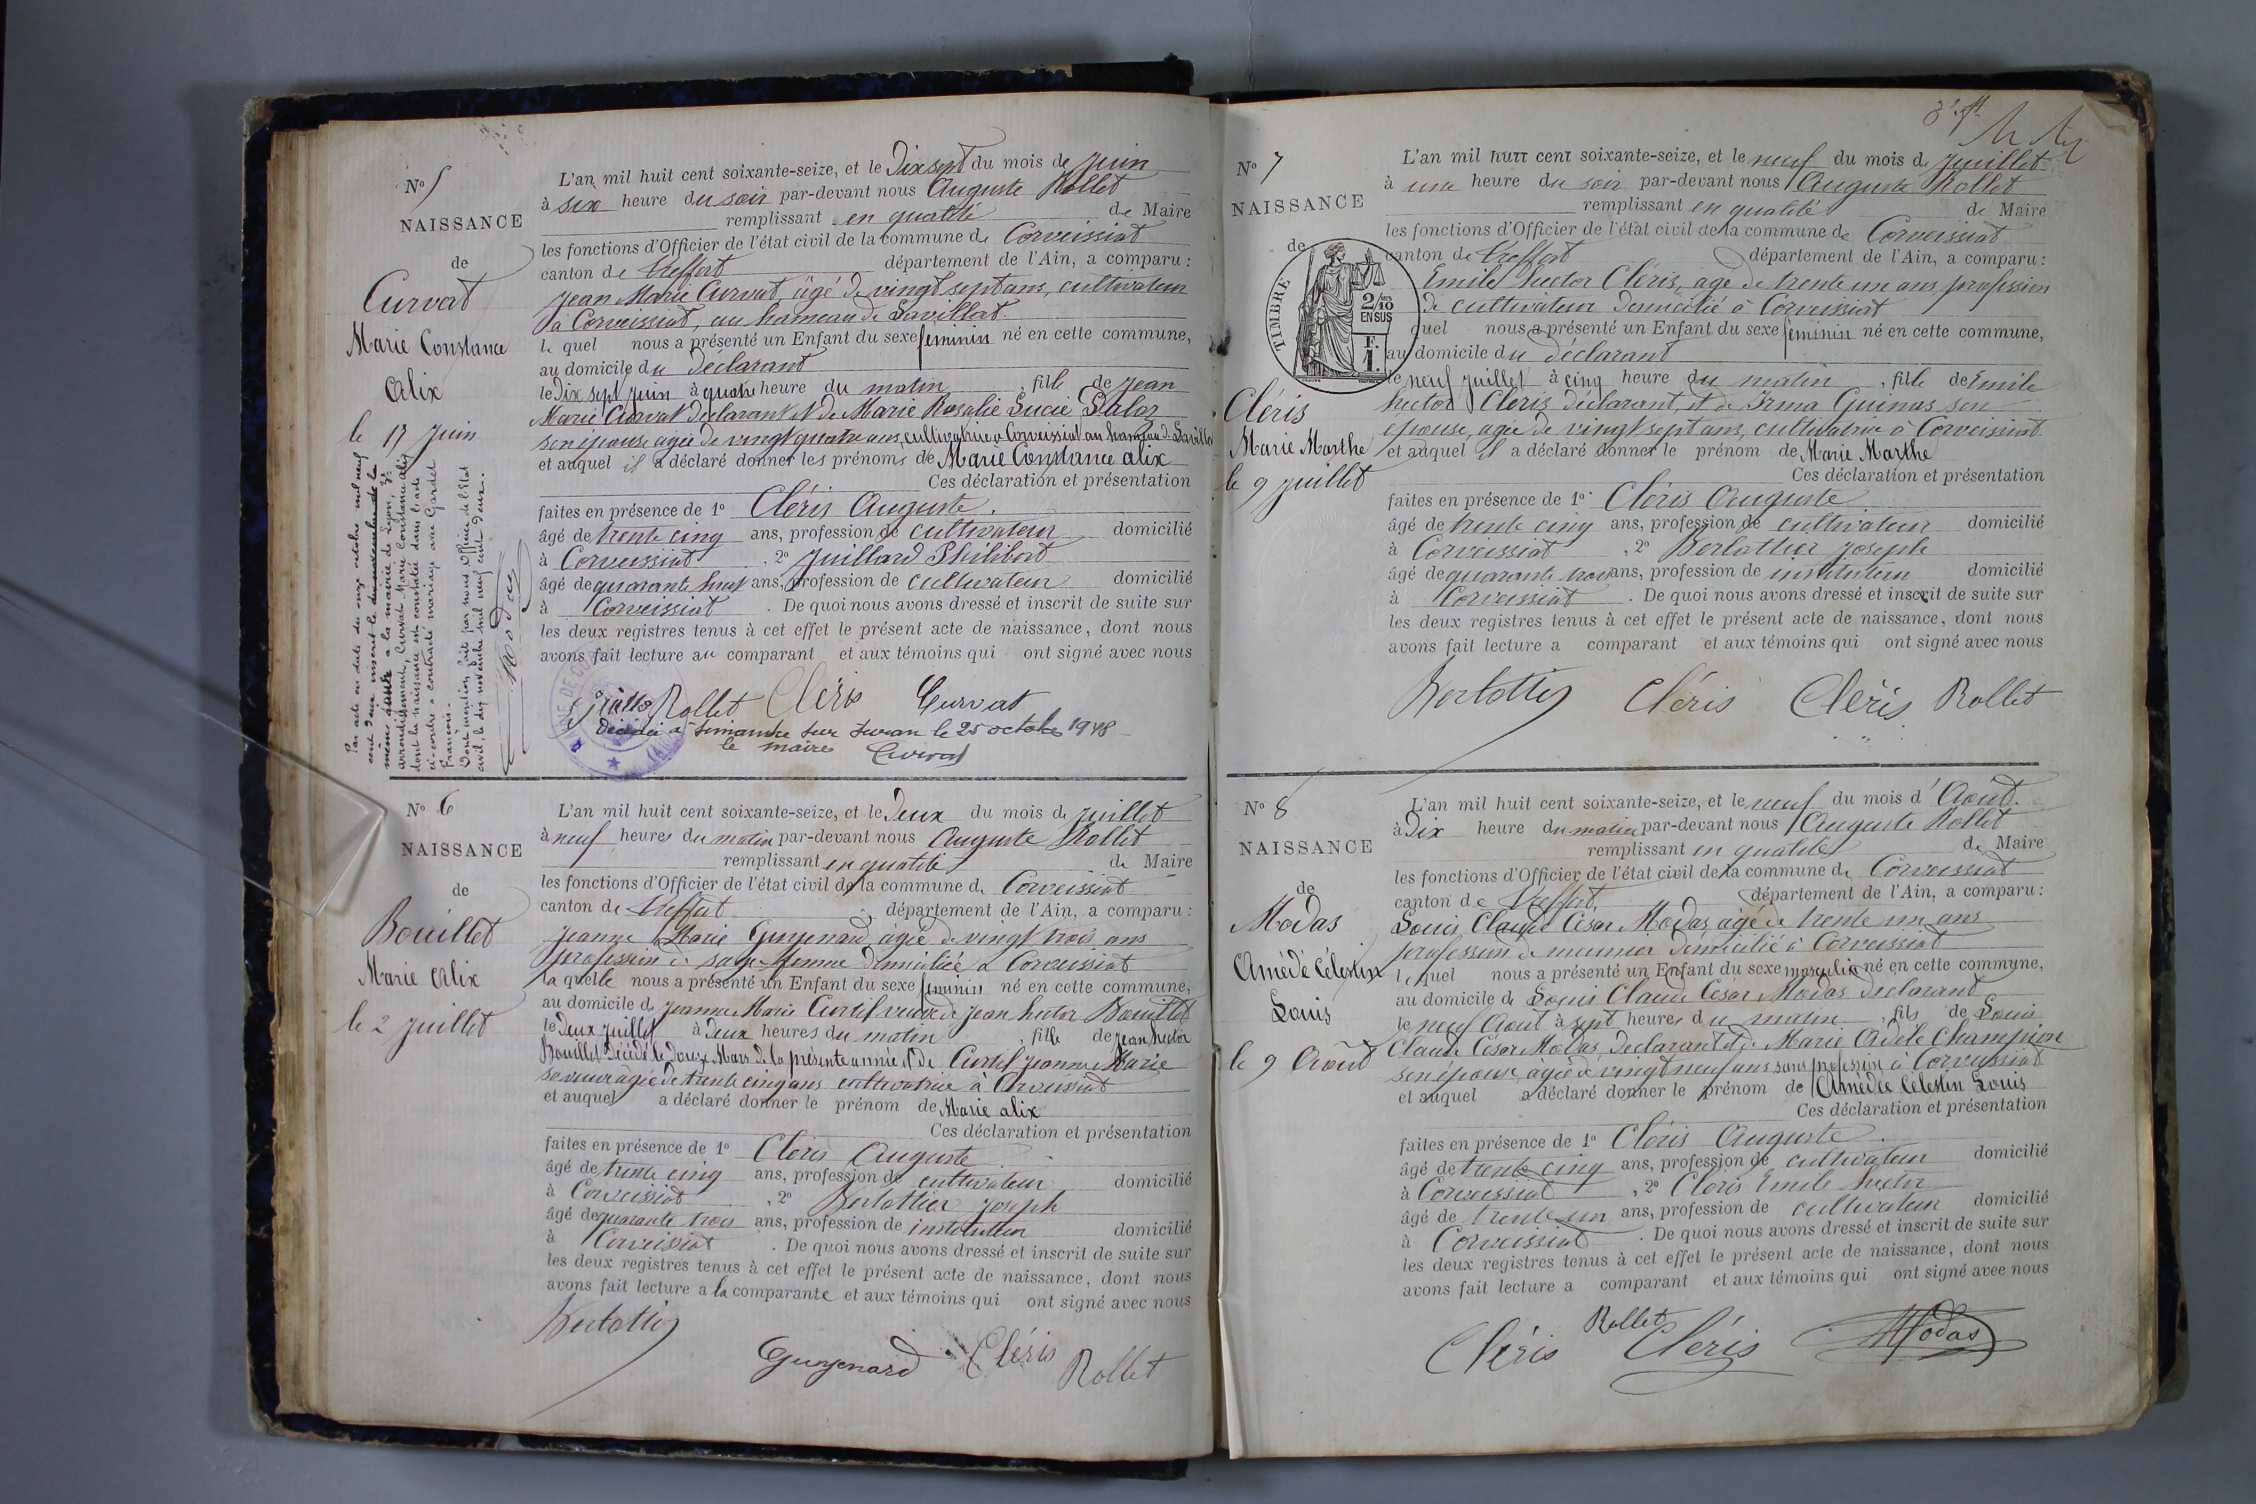 No 5
NAISSANCE
de
Curvat
Marie Constance
Alix
le 17 juin
L'an mil huit cent soixante-seize, et le Dix sept du mois de juin
à six heure du soir par-devant nous Auguste Rollet
remplissant en qualité de Maire
les fonctions d'Officier de l'état civil de la commune de Corveissiat
canton de Treffort département de l'Ain, a comparu :
Jean Marie Curvat, âgé de vingt sept ans, cultivateur
à Corveissiat, au hameau de Lavillat
le quel nous a présenté un Enfant du sexe feminin né en cette commune,
au domicile du déclarant
le Dix sept juin à quatre heure du matin, fille de jean
Marie Curvat déclarant et de Marie Rosalie Lucie
son épouse agée de vingt quatre ans, cultivatrice à Corveissiat au hameau de Lavillat
et auquel il a déclaré donner les prénoms de Marie Constance alix
Ces déclaration et présentation
faites en présence de 1º Cléris Auguste.
âgé de trente cinq ans, profession de cultivateur domicilié
à Corveissiat, 2º Juillard Philibert
âgé de quarante neuf ans, profession de cultivateur domicilié
à Corveissiat. De quoi nous avons dressé et inscrit de suite sur
les deux registres tenus à cet effet le présent acte de naissance, dont nous
avons fait lecture au comparant et aux témoins qui ont signé avec nous
Rollet Cléris Curvat
Décédée à Simandre sur Suran le 25 octobre 1948
le maire
Curvat
Par acte en date du onze octobre mil neuf
cent deux inscrit le
même à la mairie de Lyon, 3e
arrondissement, Curvat Marie Constance Alix
dont la naissance est constatée dans l'acte
ci-contre a contracté mariage avec Gardet
François.
Dont mention, faite par nous Officier de l'état
civil, le dix novembre mil neuf cent deux.
No 6
NAISSANCE
de
Bouillet
Marie Alix
le 2 juillet
L'an mil huit cent soixante-seize, et le Deux du mois de juillet
à neuf heures du matin par-devant nous Auguste Rollet
remplissant en qualité de Maire
les fonctions d'Officier de l'état civil de la commune de Corveissiat
canton de Treffort département de l'Ain, a comparu :
Jeanne Marie Guyenard, âgée de vingt trois ans
profession de sage-femme domiciliée à Corveissiat
la quelle nous a présenté un Enfant du sexe feminin né en cette commune,
au domicile de jeanne Marie Curtil veuve de jean hector Bouillet
le Deux juillet à Deux heures du matin, fille de jean hector
Bouillet Décédé le Douze Mars de la présente année et de Curtil jeanne Marie
sa veuve âgée de trente cinq ans cultivatrice à Corveissiat
et auquel a déclaré donner le prénom de Marie alix
Ces déclaration et présentation
faites en présence de 1º Cléris Auguste
âgé de trente cinq ans, profession de cultivateur domicilié
à Corveissiat, 2º Berlottier joseph
âgé de quarante trois ans, profession de instituteur domicilié
à Corveissiat. De quoi nous avons dressé et inscrit de suite sur
les deux registres tenus à cet effet le présent acte de naissance, dont nous
avons fait lecture a la comparante et aux témoins qui ont signé avec nous
Guyenard Cléris Rollet
No 7
NAISSANCE
de
TIMBRE
2/10
EN SUS
F.
1.
Cléris
Marie Marthe
le 9 juillet
L'an mil huit cent soixante-seize, et le neuf du mois de juillet
à une heure du soir par-devant nous Auguste Rollet
remplissant en qualité de Maire
les fonctions d'Officier de l'état civil de la commune de Corveissiat
canton de Treffort département de l'Ain, a comparu :
Emile hector Cléris, agé de trente un ans profession
de cultivateur domicilié à Corveissiat
quel nous a présenté un Enfant du sexe feminin né en cette commune,
au domicile du déclarant
le neuf juillet à cinq heure du matin, fille de Emile
hector Cléris déclarant, et de Irma Guinas son
épouse, agée de vingt sept ans, cultivatrice à Corveissiat
et auquel il a déclaré donner le prénom de Marie Marthe
Ces déclaration et présentation
faites en présence de 1º Cléris Auguste
âgé de trente cinq ans, profession de cultivateur domicilié
à Corveissiat, 2º Berlottier joseph
âgé de quarante trois ans, profession de instituteur domicilié
à Corveissiat. De quoi nous avons dressé et inscrit de suite sur
les deux registres tenus à cet effet le présent acte de naissance, dont nous
avons fait lecture a comparant et aux témoins qui ont signé avec nous
Cléris Cléris Rollet
No 8
NAISSANCE
de
Modas
Amédé Célestin
Louis
le 9 Août
L'an mil huit cent soixante-seize, et le neuf du mois d'Août.
à Dix heure du matin par-devant nous Auguste Rollet
remplissant en qualité de Maire
les fonctions d'Officier de l'état civil de la commune de Corveissiat
canton de Treffort, département de l'Ain, a comparu :
Louis Claude César Modas, agé de trente un ans
profession de meunier domicilié à Corveissiat
le quel nous a présenté un Enfant du sexe masculin né en cette commune,
au domicile de Louis Claude César Modas déclarant
le neuf Aout à sept heures du matin, fils de Louis
Claude César Modas declarant et de Marie Adèle Champion
son épouse, agée de vingt neuf ans sans profession à Corveissiat
et auquel a déclaré donner le prénom de Amédée Célestin Louis
Ces déclaration et présentation
faites en présence de 1º Cléris Auguste.
âgé de trente cinq ans, profession de cultivateur domicilié
à Corveissiat, 2º Cléris Emile hector
âgé de trente un ans, profession de cultivateur domicilié
à Corveissiat. De quoi nous avons dressé et inscrit de suite sur
les deux registres tenus à cet effet le présent acte de naissance, dont nous
avons fait lecture a comparant et aux témoins qui ont signé avec nous
Cléris Rollet Cléris Modas